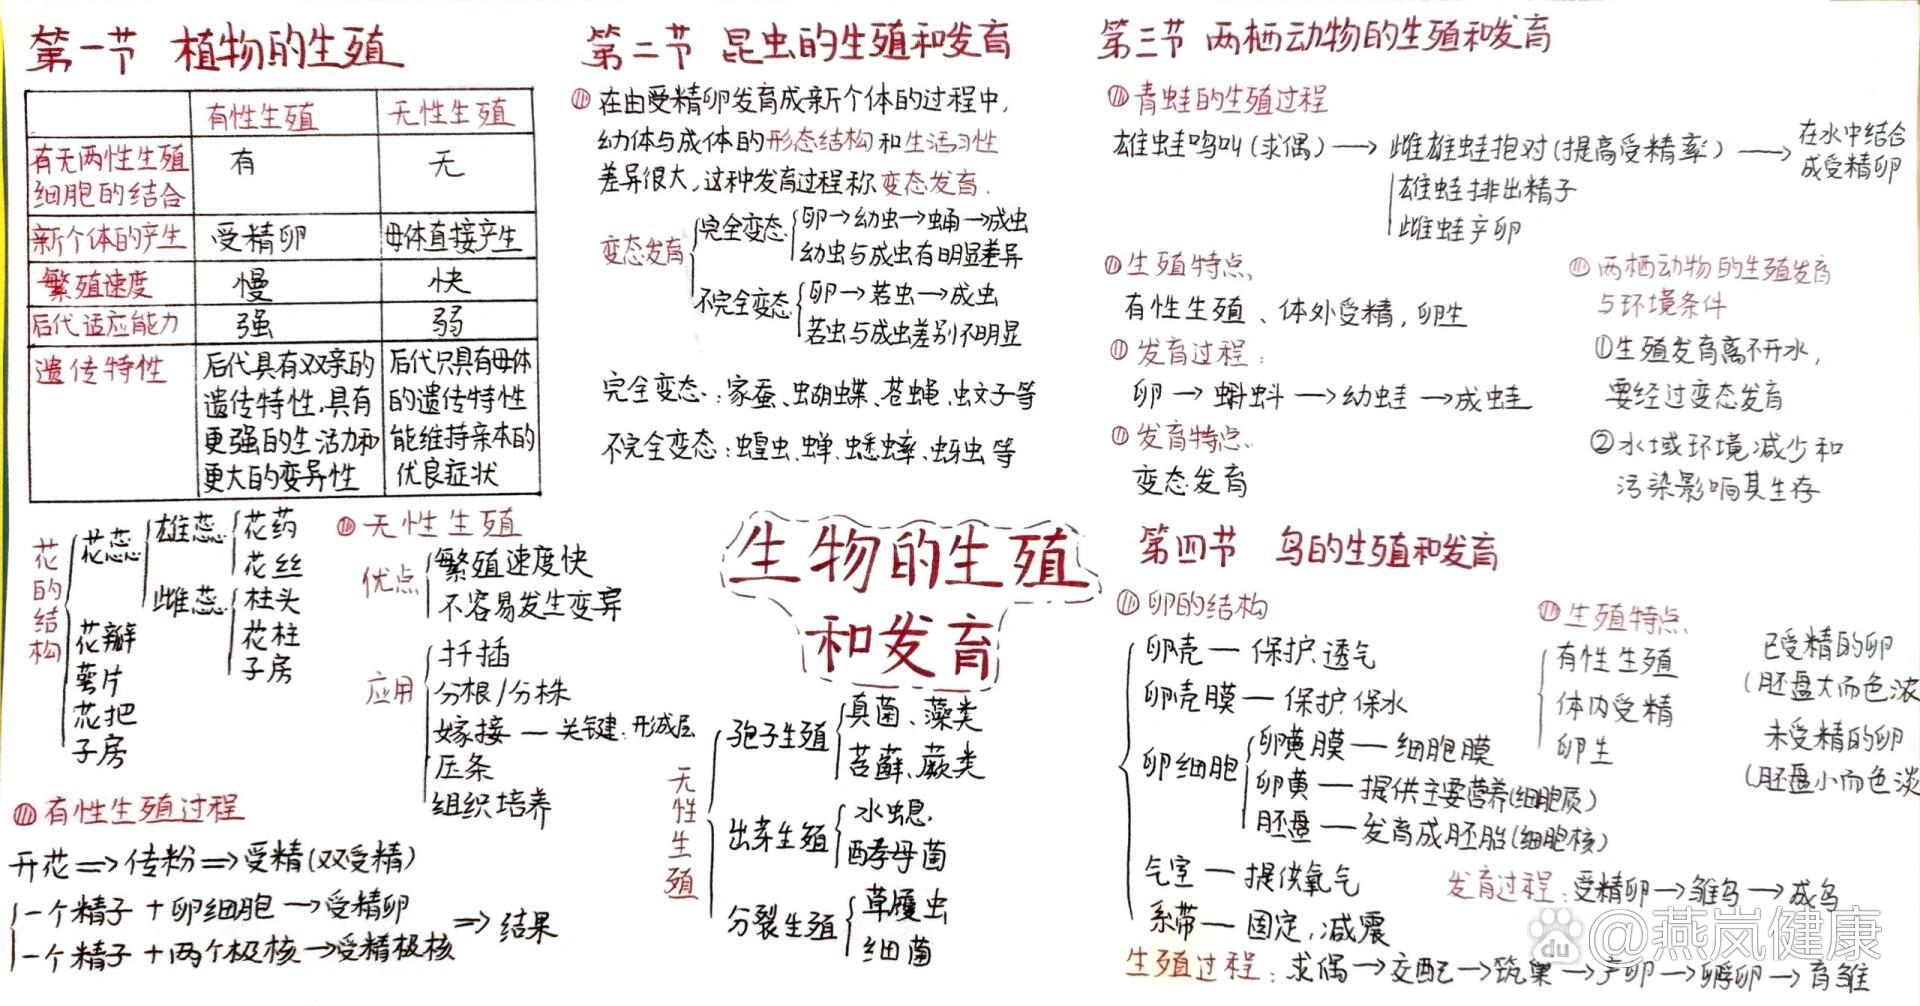 第一节 植物的生殖
有性生殖 无性生殖
有无两性生殖
细胞的结合
有 无
新个体的产生 受精卵 母体直接产生
繁殖速度 慢 快
后代适应能力 强 弱
遗传特性
后代具有双亲的
遗传特性,具有
更强的生活力和
更大的变异性
后代只具有母体
的遗传特性
能维持亲本的
优良症状
花的结构
花蕊
雄蕊
花药
花丝
雌蕊
柱头
花柱
子房
花瓣
萼片
花把
子房
无性生殖
优点
繁殖速度快
不容易发生变异
应用
扦插
分根/分株
嫁接—关键:形成层
压条
组织培养
有性生殖过程
开花⇒传粉⇒受精(双受精)
一个精子+卵细胞→受精卵
一个精子+两个极核→受精极核
⇒结果
第二节 昆虫的生殖和发育
在由受精卵发育成新个体的过程中,
幼体与成体的形态结构和生活习性
差异很大,这种发育过程称变态发育.
变态发育
完全变态
卵→幼虫→蛹→成虫
幼虫与成虫有明显差异
不完全变态
卵→若虫→成虫
若虫与成虫差别不明显
完全变态:家蚕、蝴蝶、苍蝇、蚊子等
不完全变态:蝗虫、蝉、蟋蟀、蚜虫等
生物的生殖
和发育
无性生殖
孢子生殖
真菌、藻类
苔藓、蕨类
出芽生殖
水螅.
酵母菌
分裂生殖
草履虫
细菌
第三节 两栖动物的生殖和发育
青蛙的生殖过程
雄蛙鸣叫(求偶)→雌雄蛙抱对(提高受精率)→在水中结合
成受精卵
雄蛙排出精子
雌蛙产卵
生殖特点
有性生殖、体外受精,卵生
发育过程:
卵→蝌蚪→幼蛙→成蛙
发育特点
变态发育
两栖动物的生殖发育
与环境条件
①生殖发育离不开水,
要经过变态发育
②水域环境减少和
污染影响其生存
第四节 鸟的生殖和发育
卵的结构
卵壳—保护.透气
卵壳膜—保护.保水
卵细胞
卵黄膜—细胞膜
卵黄—提供主要营养(细胞质)
胚盘—发育成胚胎(细胞核)
气室—提供氧气
系带—固定,减震
生殖特点
有性生殖
体内受精
卵生
已受精的卵
(胚盘大而色浓
未受精的卵
(胚盘小而色淡
发育过程:受精卵→雏鸟→成鸟
生殖过程:求偶→交配→筑巢→产卵→孵卵→育雏
du @燕岚健康